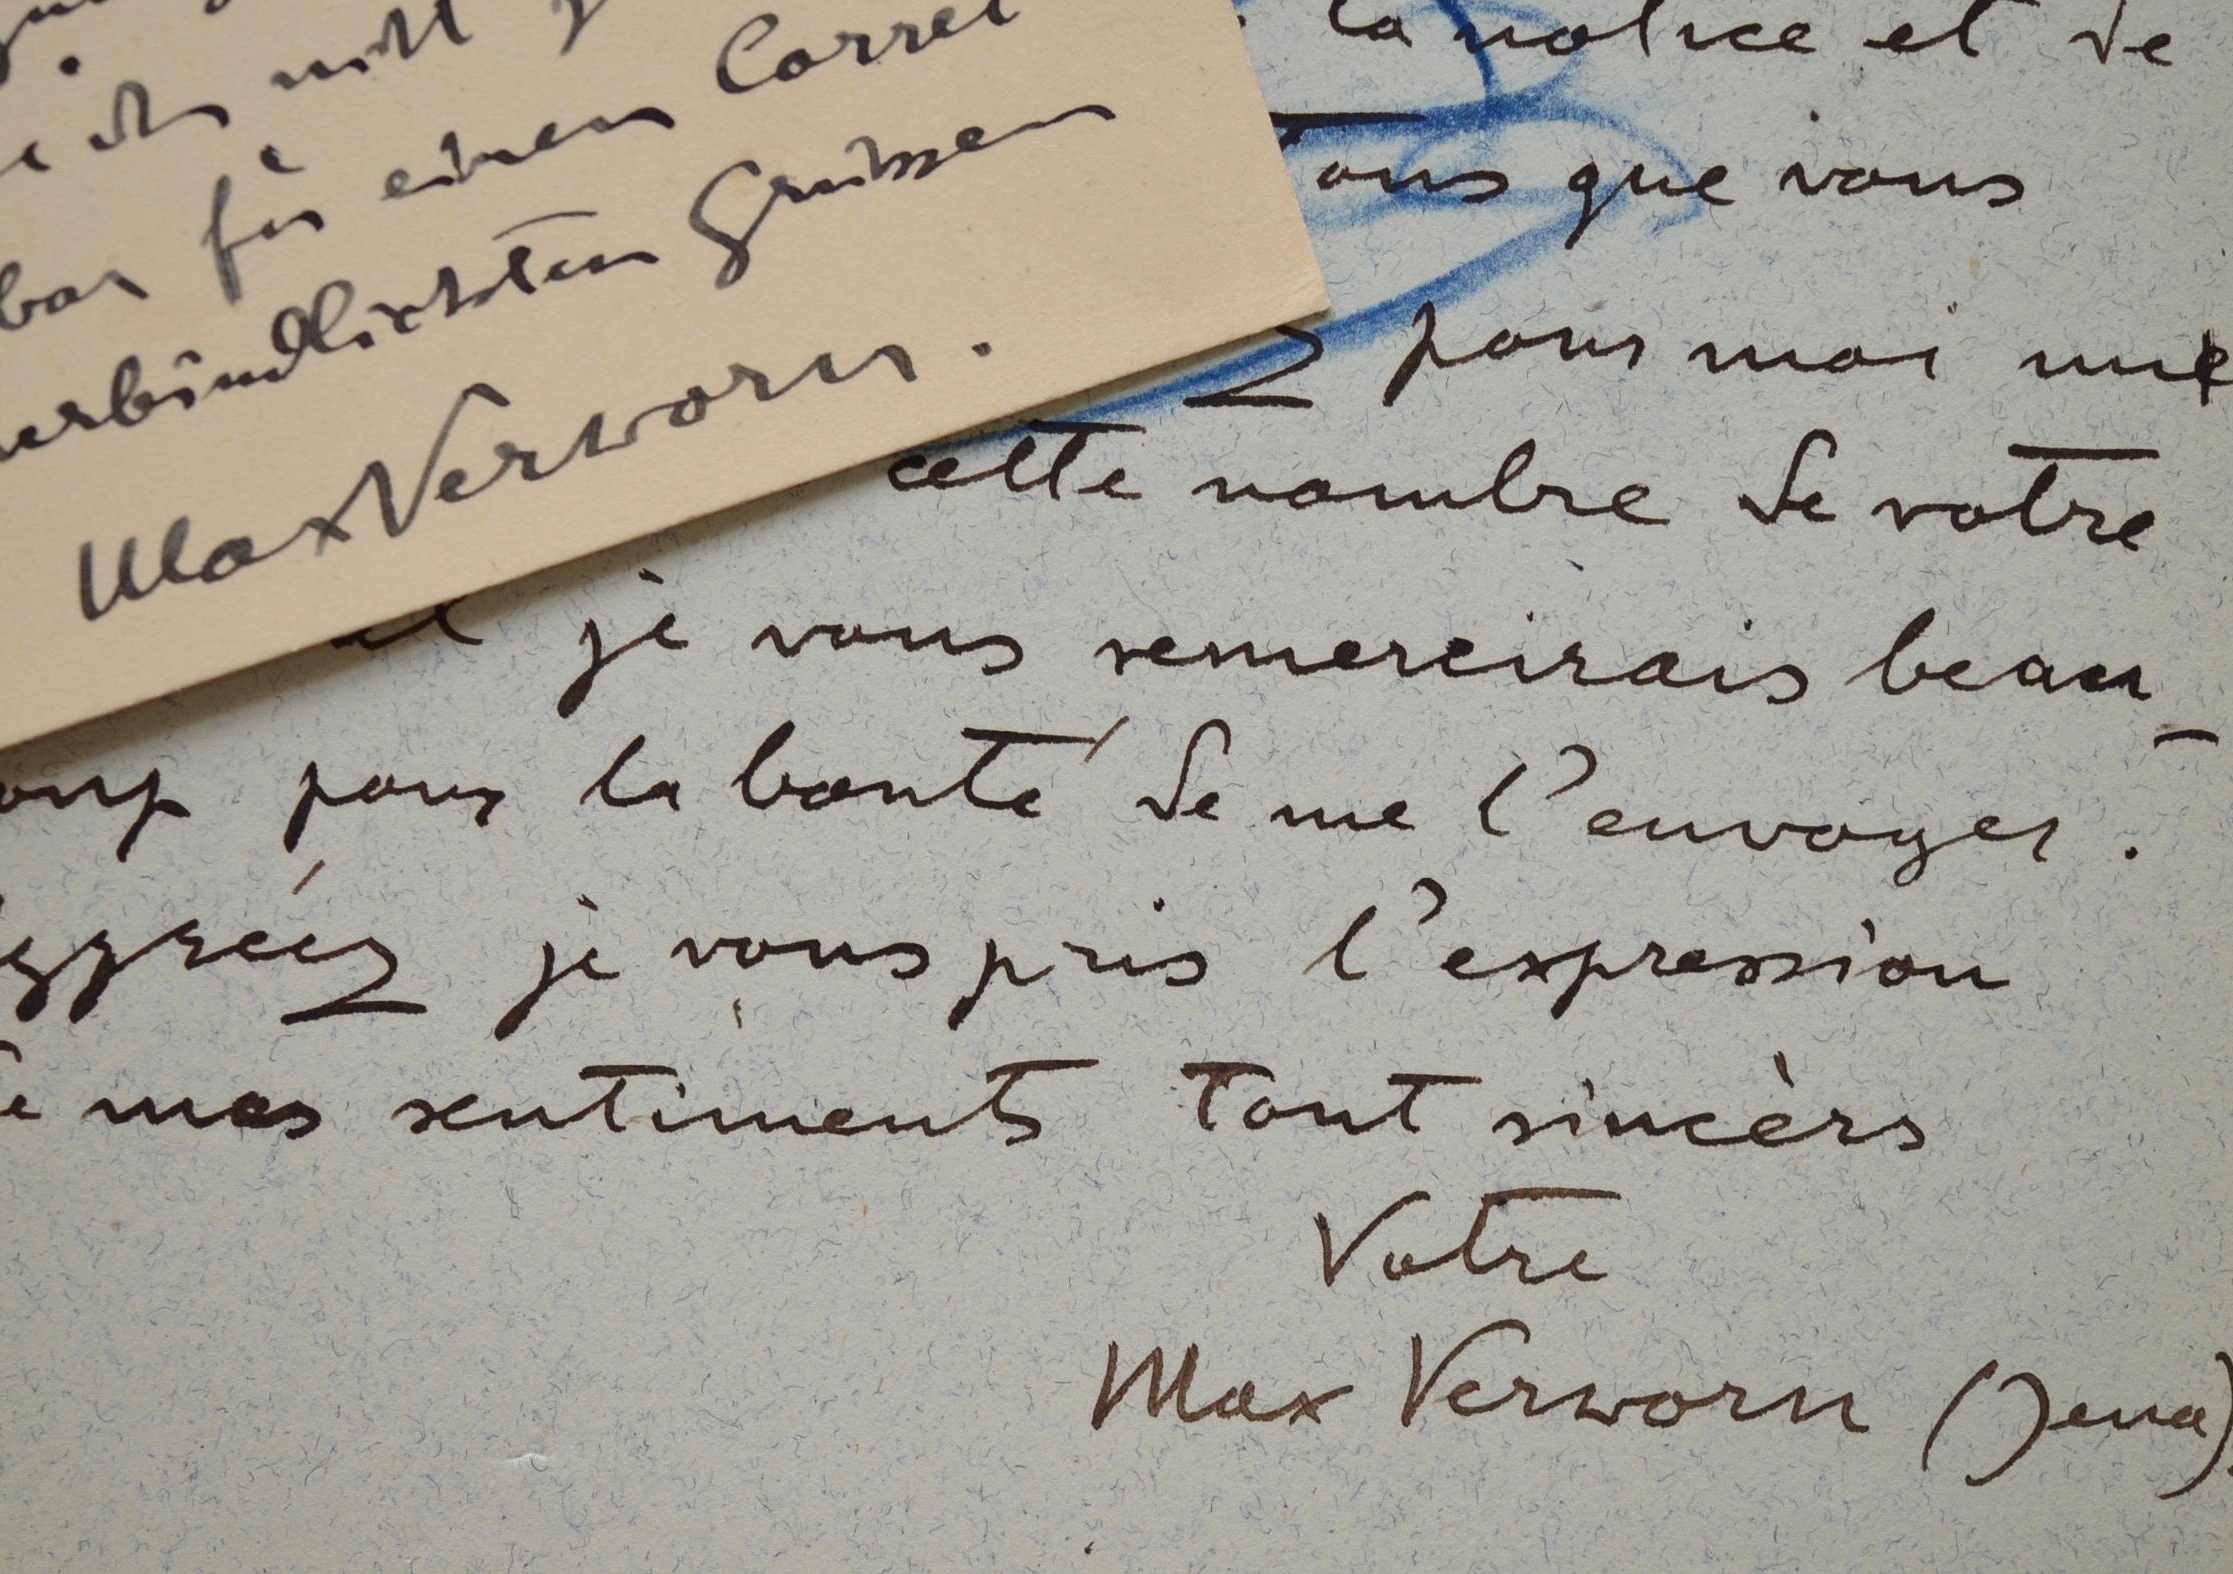 ich nicht
bar für einen Corres
verbindlichsten Grüssen
Max Verworn.
la notice et de
tous que vous
pour moi une
cette nombre de votre
et je vous remercirais beau-
coup pour la bonté de me l'envoyer.
Aggréez je vous pris l'expression
de mes sentiments tout sincèrs
Votre
Max Verworn (Jena).